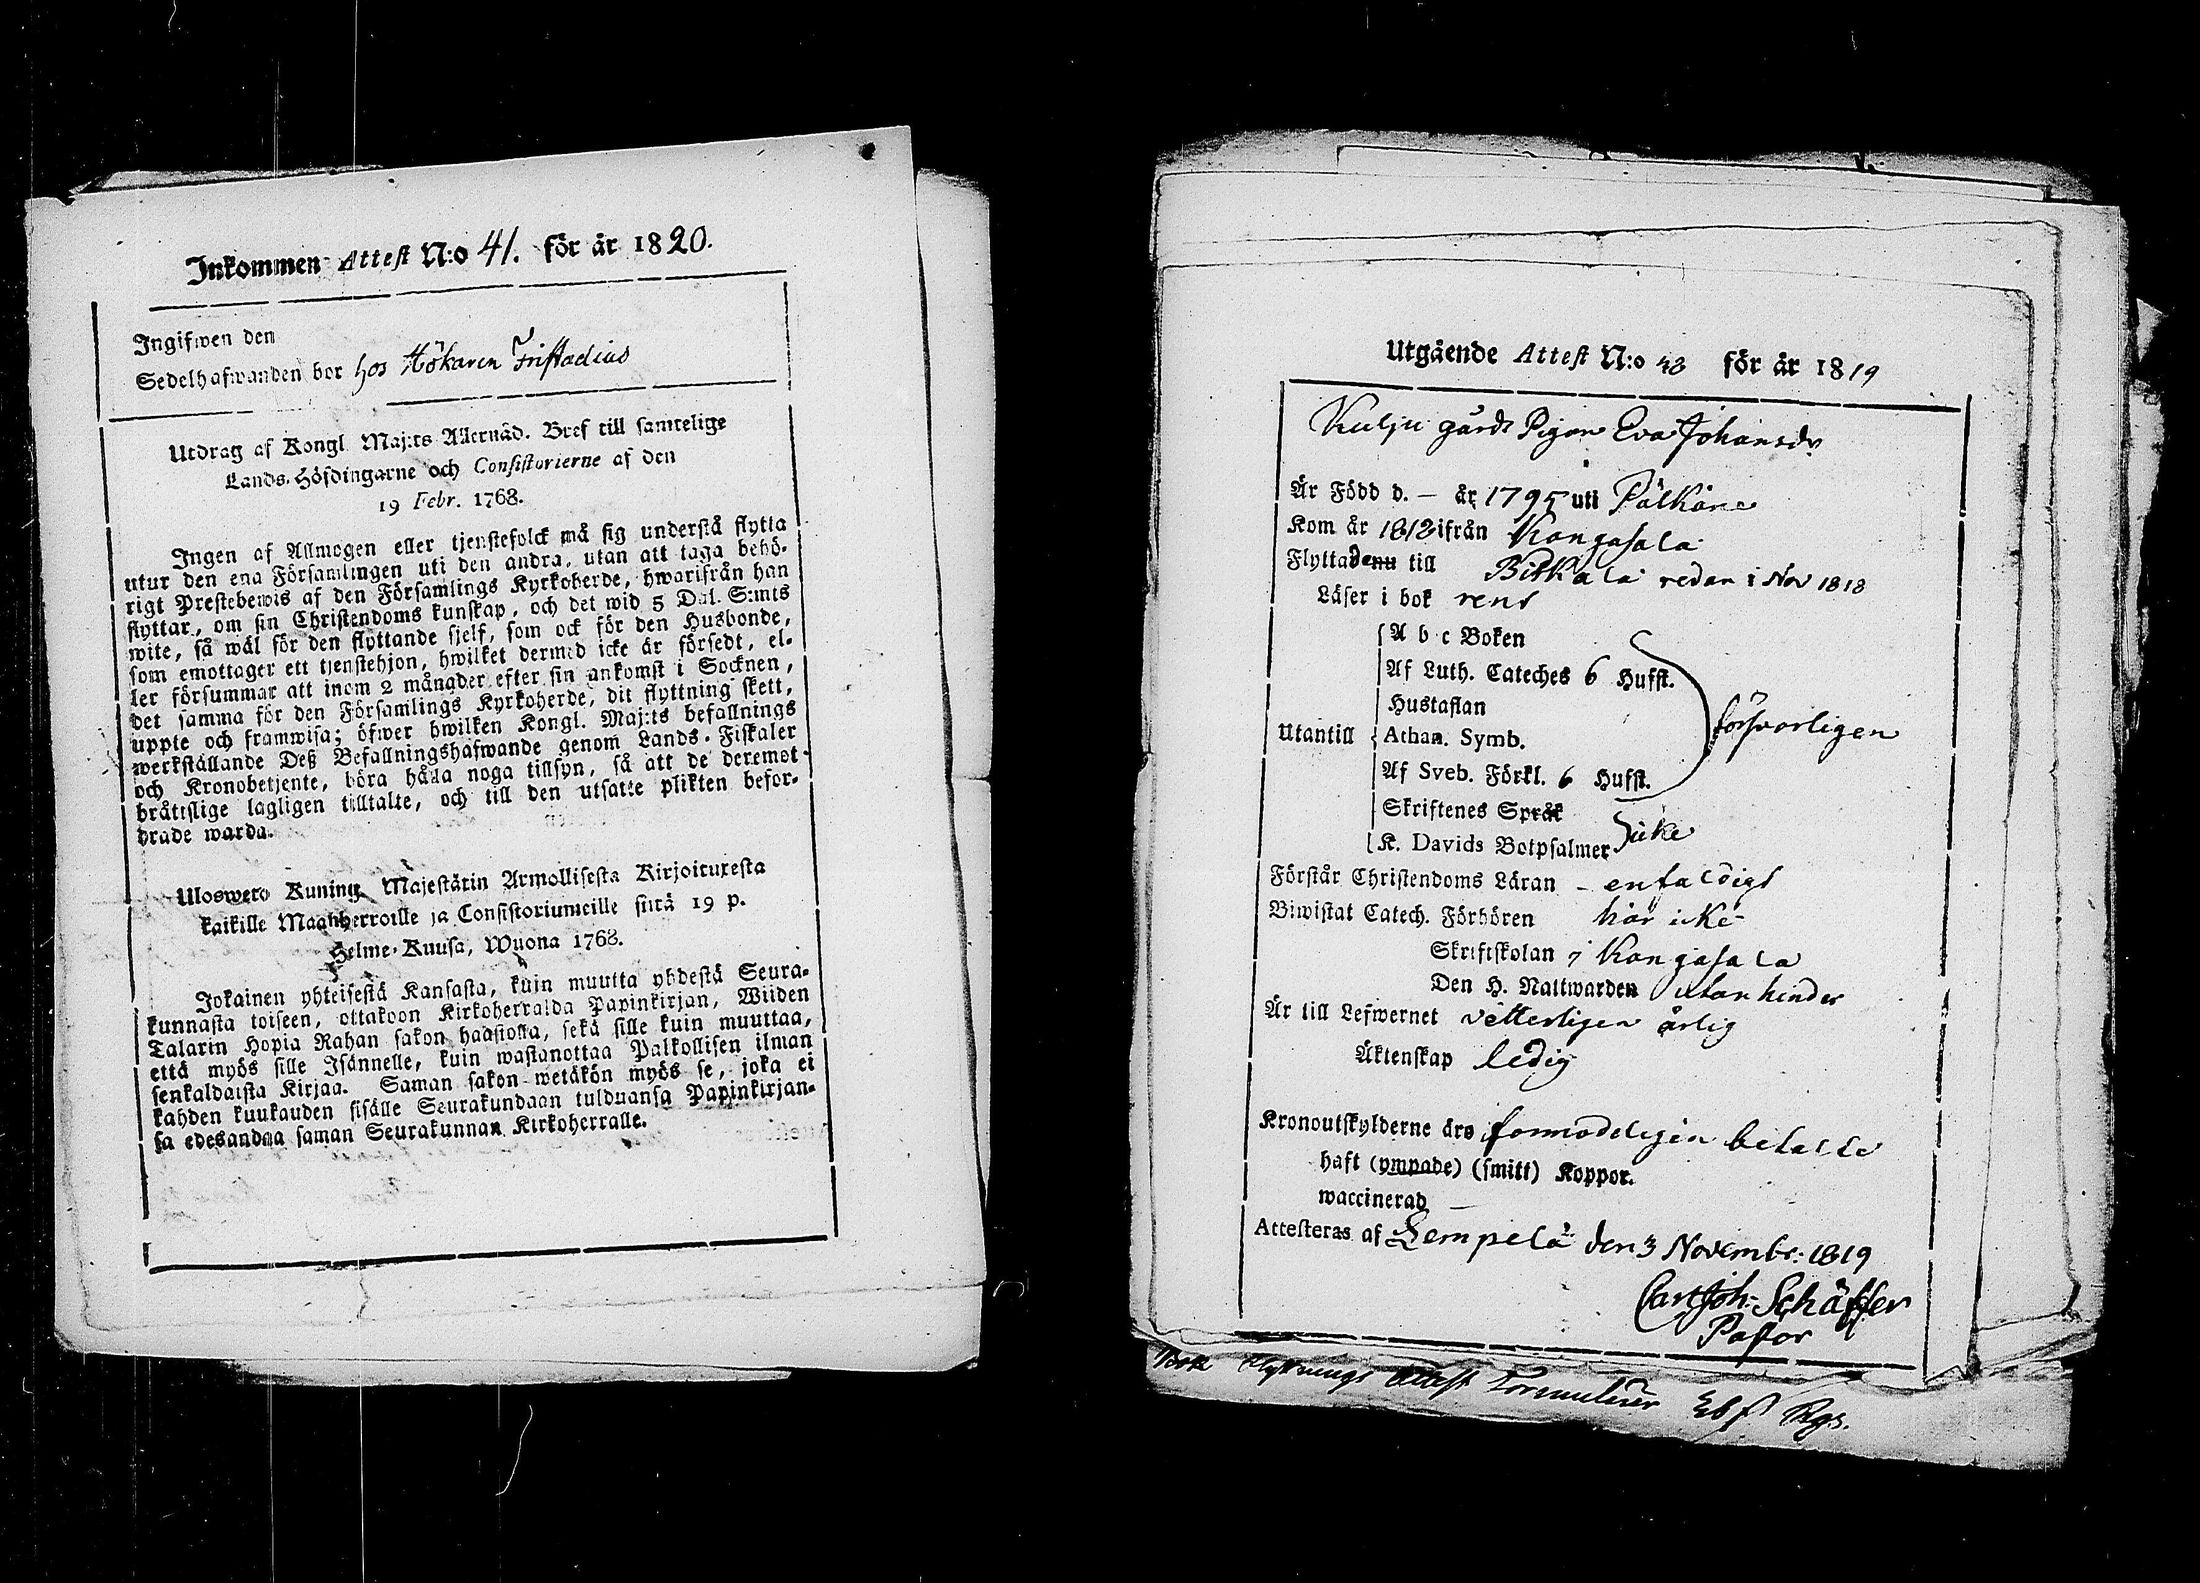 Inkommen Attest N:o 41. för år 1820.
Ingifwen den
Sedelhafwanden bor hos Hökaren Fristadius
Utdrag af Kongl. Maj:ts Allernåd. Bref till samtelige
Lands-Höfdingarne och Consistorierne af den
19 Febr. 1768.
Ingen af Allmogen eller tjenstefolck må sig understå flytta
utur den ena Församlingen uti den andra, utan att taga behö-
rigt Prestebewis af den Församlings Kyrkoherde, hwarifrån han
flyttar, om sin Christendoms kunskap, och det wid 5 Dal. S:mts
wite, så wäl för den flyttande sjelf, som ock för den Husbonde,
som emottager ett tjenstehjon, hwilket dermed icke är försedt, el-
ler försummar att inom 2 månader efter sin ankomst i Socknen,
det samma för den Församlings Kyrkoherde, dit flyttning skett,
uppte och framwisa; öfwer hwilken Kongl. Maj:ts befallnings
werkställande Deß Befallningshafwande genom Lands-Fiskaler
och Kronobetjente, böra hålla noga tillsyn, så att de deremot
bråttslige lagligen tilltalte, och till den utsatte plikten befor-
drade warda.
Uloswero Kuning. Majestätin Armollisesta Kirjoituxesta
kaikille Maanherroille ja Consistoriumeille siitä 19 p.
Helme-Kuusa, Wuona 1768.
Jokainen yhteisestä Kansasta, kuin muutta yhdestä Seura-
kunnasta toiseen, ottakoon Kirkoherralda Papinkirjan, Wiiden
Talarin Hopia Rahan sakon haastolla, sekä sille kuin muuttaa,
että myös sille Isännelle, kuin wastanottaa Palkollisen ilman
senkaldaista Kirjaa. Saman sakon wetäkön myös se, joka ei
kahden kuukauden sisälle Seurakundaan tulduansa Papinkirjan-
sa edesandaa saman Seurakunnan Kirkoherralle.
Utgående Attest N:o 43 för år 1819
Kulju gårds Pigan Eva Johansdr
Är Född d. – år 1795 uti Pälkäne
Kom år 1818 ifrån Kangasala
Flyttade nu till Birkala redan i Nov 1818
Läser i bok rent
A b c Boken
Af Luth. Cateches 6 Hufst.
Hustaflan
Utantill Athan. Symb. försvarligen
Af Sveb. Förkl. 6 Hufst.
Skriftenes Språk
K. Davids Botpsalmer icke
Förstår Christendoms Läran – enfaldigt
Biwistat Catech. Förhören här icke
Skriftskolan i Kangasala
Den H. Nattwarden utan hinder
Är till Lefwernet vetterligen ärlig
Äktenskap ledig
Kronoutskylderne äro förmodeligen betalte
haft (ympade) (smitt) Koppor.
waccinerad –
Attesteras af Lempelä den 3 Novembr: 1819
Carl Joh: Schäffer
Pastor
Flyttnings Attest Formulerer